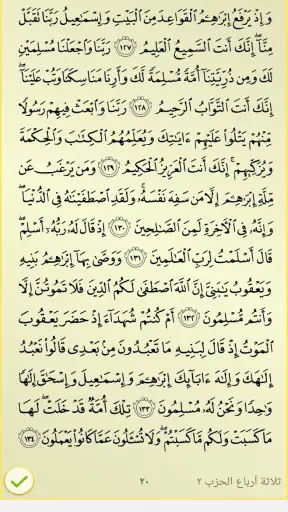 وَإِذْ يَرْفَعُ إِبْرَٰهِـۧمُ ٱلْقَوَاعِدَ مِنَ ٱلْبَيْتِ وَإِسْمَٰعِيلُ رَبَّنَا تَقَبَّلْ
مِنَّآ ۖ إِنَّكَ أَنتَ ٱلسَّمِيعُ ٱلْعَلِيمُ ١٢٧ رَبَّنَا وَٱجْعَلْنَا مُسْلِمَيْنِ
لَكَ وَمِن ذُرِّيَّتِنَآ أُمَّةً مُّسْلِمَةً لَّكَ وَأَرِنَا مَنَاسِكَنَا وَتُبْ عَلَيْنَآ ۖ
إِنَّكَ أَنتَ ٱلتَّوَّابُ ٱلرَّحِيمُ ١٢٨ رَبَّنَا وَٱبْعَثْ فِيهِمْ رَسُولًا
مِّنْهُمْ يَتْلُوا۟ عَلَيْهِمْ ءَايَٰتِكَ وَيُعَلِّمُهُمُ ٱلْكِتَٰبَ وَٱلْحِكْمَةَ
وَيُزَكِّيهِمْ ۚ إِنَّكَ أَنتَ ٱلْعَزِيزُ ٱلْحَكِيمُ ١٢٩ وَمَن يَرْغَبُ عَن
مِّلَّةِ إِبْرَٰهِـۧمَ إِلَّا مَن سَفِهَ نَفْسَهُۥ ۚ وَلَقَدِ ٱصْطَفَيْنَٰهُ فِى ٱلدُّنْيَا ۖ
وَإِنَّهُۥ فِى ٱلْـَٔاخِرَةِ لَمِنَ ٱلصَّٰلِحِينَ ١٣٠ إِذْ قَالَ لَهُۥ رَبُّهُۥٓ أَسْلِمْ ۖ
قَالَ أَسْلَمْتُ لِرَبِّ ٱلْعَٰلَمِينَ ١٣١ وَوَصَّىٰ بِهَآ إِبْرَٰهِـۧمُ بَنِيهِ
وَيَعْقُوبُ يَٰبَنِىَّ إِنَّ ٱللَّهَ ٱصْطَفَىٰ لَكُمُ ٱلدِّينَ فَلَا تَمُوتُنَّ إِلَّا
وَأَنتُم مُّسْلِمُونَ ١٣٢ أَمْ كُنتُمْ شُهَدَآءَ إِذْ حَضَرَ يَعْقُوبَ
ٱلْمَوْتُ إِذْ قَالَ لِبَنِيهِ مَا تَعْبُدُونَ مِنۢ بَعْدِى قَالُوا۟ نَعْبُدُ
إِلَٰهَكَ وَإِلَٰهَ ءَابَآئِكَ إِبْرَٰهِـۧمَ وَإِسْمَٰعِيلَ وَإِسْحَٰقَ إِلَٰهًا
وَٰحِدًا وَنَحْنُ لَهُۥ مُسْلِمُونَ ١٣٣ تِلْكَ أُمَّةٌ قَدْ خَلَتْ ۖ لَهَا
مَا كَسَبَتْ وَلَكُم مَّا كَسَبْتُمْ ۖ وَلَا تُسْـَٔلُونَ عَمَّا كَانُوا۟ يَعْمَلُونَ ١٣٤
ثلاثة أرباع الحزب ٢
٢٠